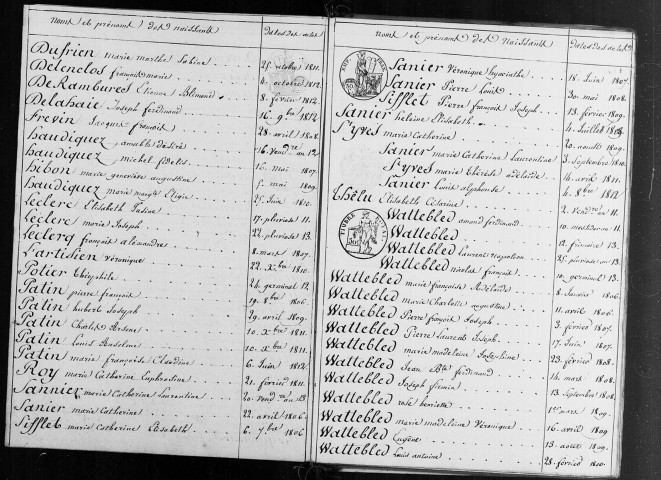 Noms et prénoms des naissants Dates des actes
Dufrien marie marthe Sabine 25 octobre 1811.
Delenclos françois marie 4 octobre 1812
DeRambures Etienne Belimond 8 fevrier 1812.
Delahaie Joseph ferdinand 16. 9bre 1812
Frevin Jacques françois 28. avril 1808.
haudiquez amable désiré 16. Vendre an 12
haudiquez michel fidelis 16. mai 1807.
hibon marie geneviève augustine 5. mai 1809.
haudiquez marie margte Eligie 25. Juin 1810.
Leclerc Elisabeth 17. pluviose 11.
Leclerc marie Joseph 22. pluviose 13.
Leclerq françois alexandre 8. mars 1807.
Lartisien Véronique 22. Xbre 1810.
Potier théophile 24. germinal 12.
Patin pierre françois 19. 8bre 1806.
Patin hubert Joseph 29. avril 1809.
Patin Charles Arsene 10. Xbre 1811.
Patin Louis Anselme 10. Xbre 1811.
Patin marie françoise Claudine 6. Juin 1812.
Roy marie Catherine Euphrosine 21. fevrier 1811.
Sannier marie Catherine Laurentine 20. vend an 13
Sanier marie Catherine 22. avril 1806.
Sifflet marie Catherine Elisabeth 6. 7bre 1806
Noms et prénoms des Naissants Dates des actes
Sanier Véronique hyacinthe 18. Juin 1807.
Sanier Pierre Louis 30. mai 1808.
Sifflet Pierre françois Joseph 13. fevrier 1809.
Sanier heleine Elisabeth 4. Juillet
St yves marie Catherine 20. aoust 1809.
Sanier marie Catherine Laurentine 3. Septembre 1810.
St yves marie thérèse adelaïde 16. avril 1811.
Sanier Louis alphonse 4. 8bre 1812
thélu Elisabeth Césarine 2. Vendre an 11.
Wattebled amand ferdinand 10. messidor an 11.
Wattebled 12. frimaire 13.
Wattebled Laurent Napoléon 25. pluviose an 13.
Wattebled nicolas françois 10. germinal 13.
Wattebled marie françoise Adélaïde 8. Janvier 1806.
Wattebled marie Charlotte augustine 11. avril 1806.
Wattebled Pierre françois Joseph 3. fevrier 1807.
Wattebled Pierre Laurent Joseph 17. Juin 1807.
Wattebled marie madeleine Joséphine 23. fevrier 1808.
Wattebled Jean Bte ferdinand 16. mars 1808.
Wattebled Joseph firmin 13. Septembre 1808.
Wattebled rose henriette 1er mars 1809.
Wattebled marie madeleine Véronique 16. avril 1809
Wattebled Eugène 13. aoust 1809.
Wattebled Louis antoine 28. fevrier 1810.